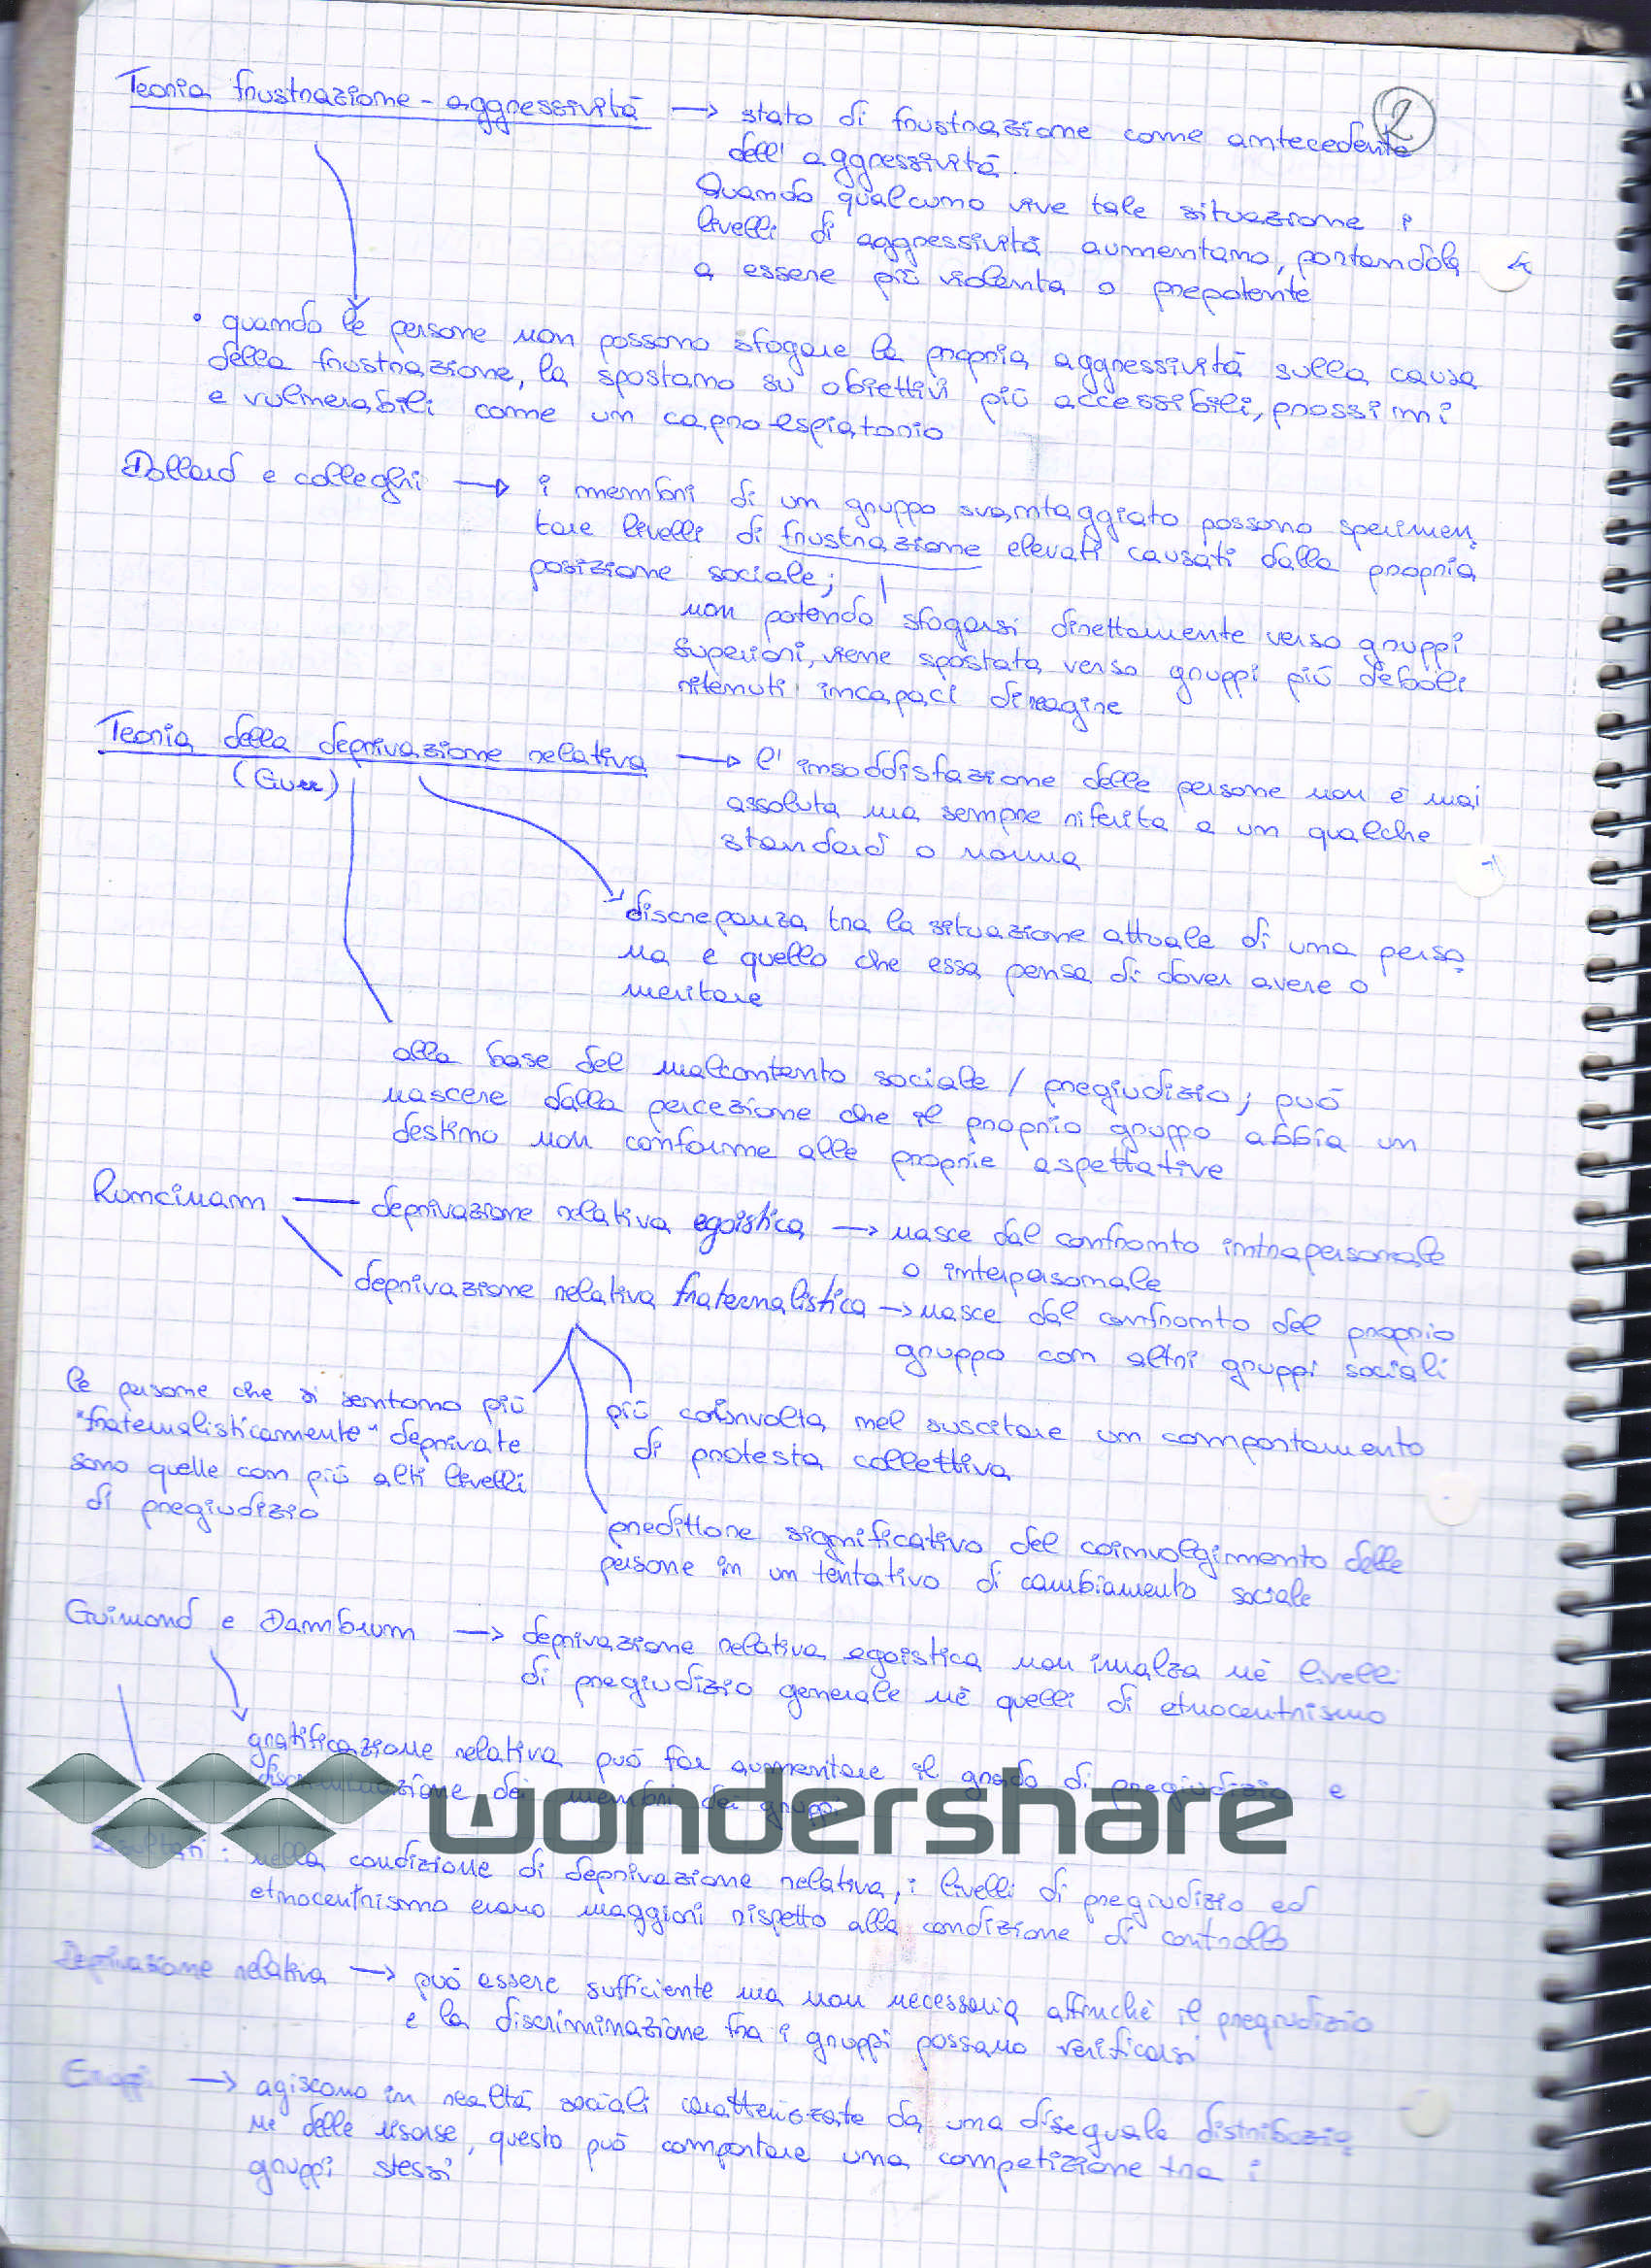 2
Teoria frustrazione - aggressività → stato di frustrazione come antecedente
dell'aggressività.
Quando qualcuno vive tale situazione i
livelli di aggressività aumentano, portandola
a essere più violenta o prepotente
• quando le persone non possono sfogare la propria aggressività sulla causa
della frustrazione, la spostano su obiettivi più accessibili, prossimi
e vulnerabili come un capro espiatorio
Dollard e colleghi → i membri di un gruppo svantaggiato possono sperimen
tare livelli di frustrazione elevati causati dalla propria
posizione sociale;
non potendo sfogarsi direttamente verso gruppi
superiori, viene spostata verso gruppi più deboli
ritenuti incapaci di reagire
Teoria della deprivazione relativa → l'insoddisfazione delle persone non è mai
(Gurr)
assoluta ma sempre riferita a un qualche
standard o norma
discrepanza tra la situazione attuale di una perso
na e quello che essa pensa di dover avere o
meritare
alla base del malcontento sociale / pregiudizio; può
nascere dalla percezione che il proprio gruppo abbia un
destino non conforme alle proprie aspettative
Runcimann — deprivazione relativa egoistica → nasce dal confronto intrapersonale
o interpersonale
deprivazione relativa fraternalistica → nasce dal confronto del proprio
gruppo con altri gruppi sociali
le persone che si sentono più
"fraternalisticamente" deprivate
sono quelle con più alti livelli
di pregiudizio
più coinvolta nel suscitare un comportamento
di protesta collettiva
predittore significativo del coinvolgimento delle
persone in un tentativo di cambiamento sociale
Guimond e Dambrum → deprivazione relativa egoistica non innalza nè livelli
di pregiudizio generale nè quelli di etnocentrismo
gratificazione relativa può far aumentare il grado di pregiudizio e
discriminazione dei membri dei gruppi
wondershare
Risultati: nella condizione di deprivazione relativa, i livelli di pregiudizio ed
etnocentrismo erano maggiori rispetto alla condizione di controllo
Deprivazione relativa → può essere sufficiente ma non necessaria affinchè il pregiudizio
e la discriminazione tra i gruppi possano verificarsi
→ agiscono in realtà sociali caratterizzate da una diseguale distribuzio
ne delle risorse, questo può comportare una competizione tra i
gruppi stessi